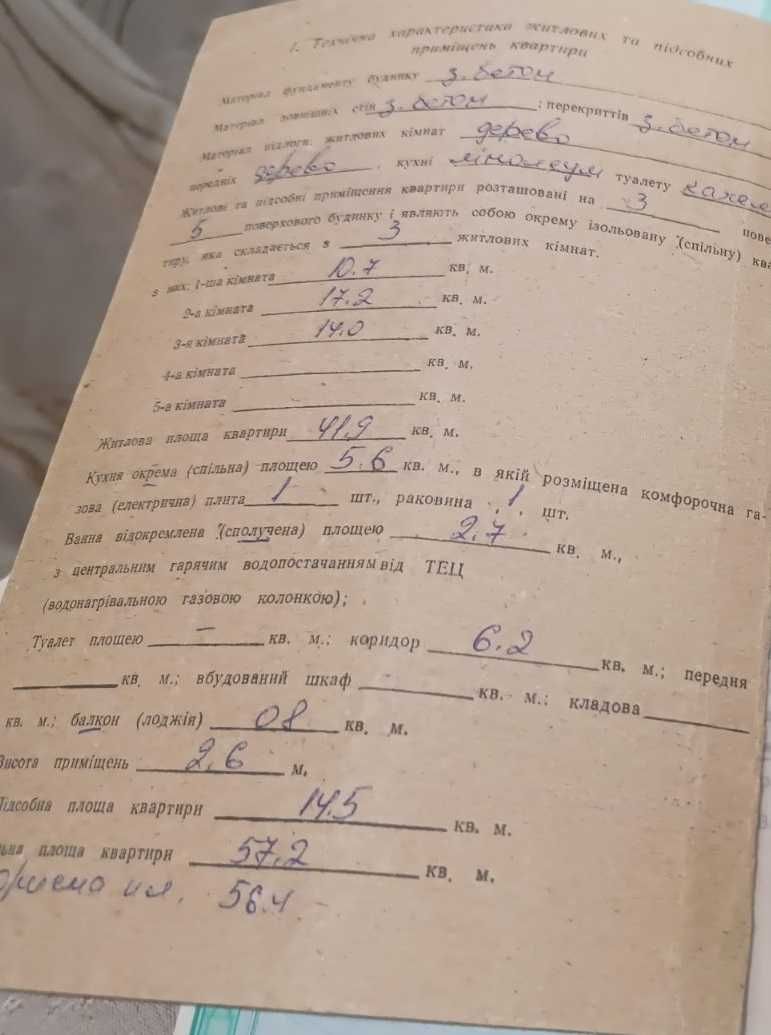 I. Технічна характеристика житлових та підсобних
приміщень квартири
Матеріал фундаменту будинку з. бетон
Матеріал зовнішніх стін з. бетон ; перекриттів з. бетон
Матеріал підлоги: житлових кімнат дерево
передніх дерево , кухні лінолеум туалету кахел
Житлові та підсобні приміщення квартири розташовані на 3 пове
5 поверхового будинку і являють собою окрему ізольовану (спільну) ква
тиру, яка складається з 3 житлових кімнат.
з них: 1-ша кімната 10.7 кв. м.
2-а кімната 17.2 кв. м.
3-я кімната 14.0 кв. м.
4-а кімната кв. м.
5-а кімната кв. м.
Житлова площа квартири 41.9 кв. м.
Кухня окрема (спільна) площею 5.6 кв. м., в якій розміщена комфорочна га-
зова (електрична) плита 1 шт., раковина 1 шт.
Ванна відокремлена (сполучена) площею 2.7 кв. м.,
з центральним гарячим водопостачанням від ТЕЦ
(водонагрівальною газовою колонкою);
Туалет площею — кв. м.; коридор 6.2 кв. м.; передня
кв. м.; вбудований шкаф кв. м.; кладова
кв. м.; балкон (лоджія) 08 кв. м.
Висота приміщень 2.6 м.
Підсобна площа квартири 14.5 кв. м.
ьна площа квартири 57.2 кв. м.
пл. 56.4